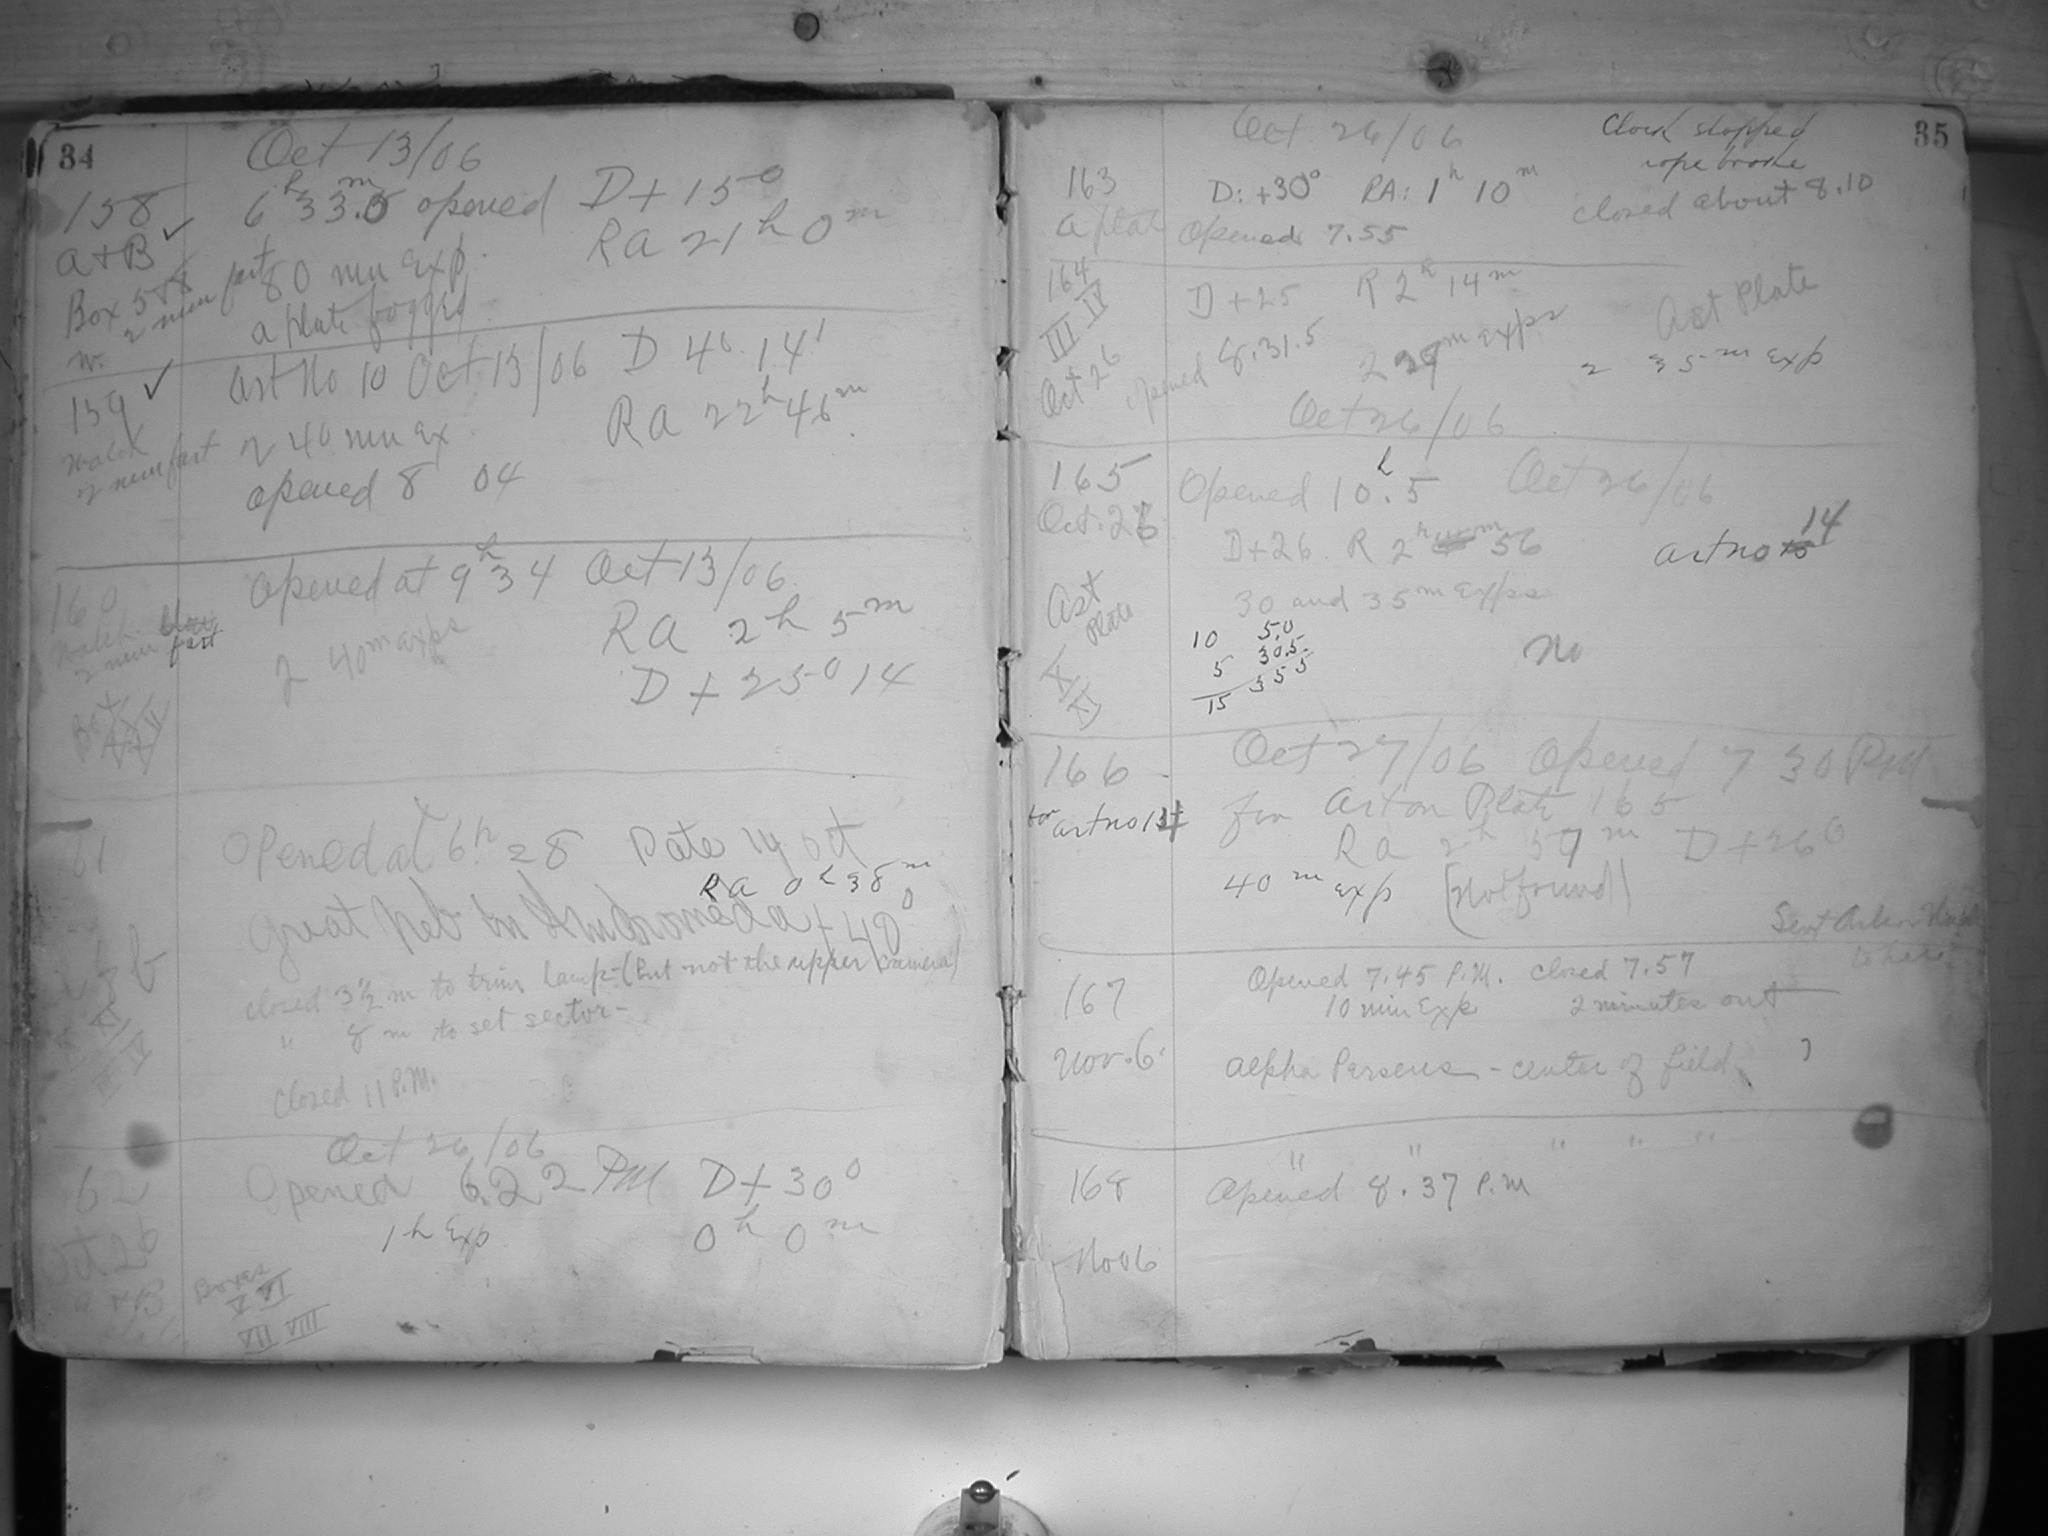 34
Oct 13/06
158
A+B ✓
Box 5
2 min fast
W.
6h 33m.5 opened D+15°
RA 21h 0m
80 min Exp.
a plate fogged
159 ✓
Watch
2 min fast
Ast No 10 Oct 13/06 D 4° 14'
RA 22h 46m
2 40 min Ex.
opened 8 04
160
Watch
2 min fast
Box
Opened at 9h 34 Oct 13/06
RA 2h 5m
2 40m exps
D + 25° 14
61
Opened at 6h 28 Date 14 Oct
RA 0h 38m
Great Neb in Andromeda + 40°
closed 3½ m to trim lamp - (but not the upper camera)
" 8 m to set sector -
Closed 11 P.M.
Oct 26/06
62
Oct 26
Opened 6.22 PM D+30°
1h Exp 0h 0m
Boxes
V VI
VII VIII
35
Oct 26/06
Clock stopped
rope broke
closed about 8.10
163
a plate
D: +30° RA: 1h 10m
Opened 7.55
164
III IV
Oct 26
D +25 R 2h 14m
Ast Plate
opened 8.31.5
2 29m exps
2 35m exp
Oct 26/06
165
Oct. 26
Opened 10h.5 Oct 26/06
D+26 R 2h 56m
14
Ast no
Ast
Plate
X
XI
30 and 35m Exps
10 5.0
5 30.5
15 355
No
166
for
ast no 14
Oct 27/06 Opened 7 30 PM
for Ast on Plate 165
RA 2h 57m D+26°
40m exp (Not found)
Sent
167
Nov. 6.
Opened 7.45 P.M. closed 7.57
10 min Exp 2 minutes out
alpha Perseus - center of field
168
Nov 6
" " " " "
Opened 8.37 P.M